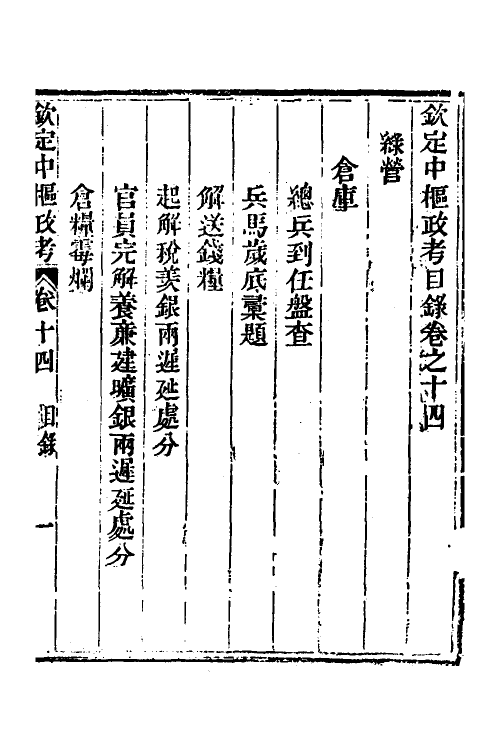 欽定中樞政考目錄卷之十四
綠營
倉庫
總兵到任盤查
兵馬歲底彙題
解送錢糧
起解稅羨銀兩遲延處分
官員完解養廉建曠銀兩遲延處分
倉糧霉爛
欽定中樞政考 卷十四 目錄 一